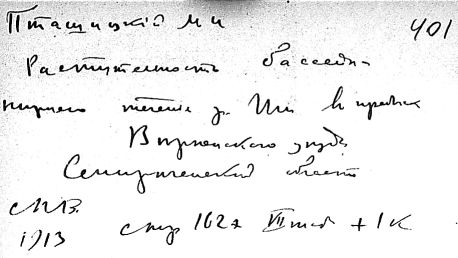 Пташицкий М И 401
Растительность бассейна
нижнего течения р. Или в пределах
Верненского уезда
Семиреченской области
СПБ.
1913 стр 162+ VII таб + 1 к